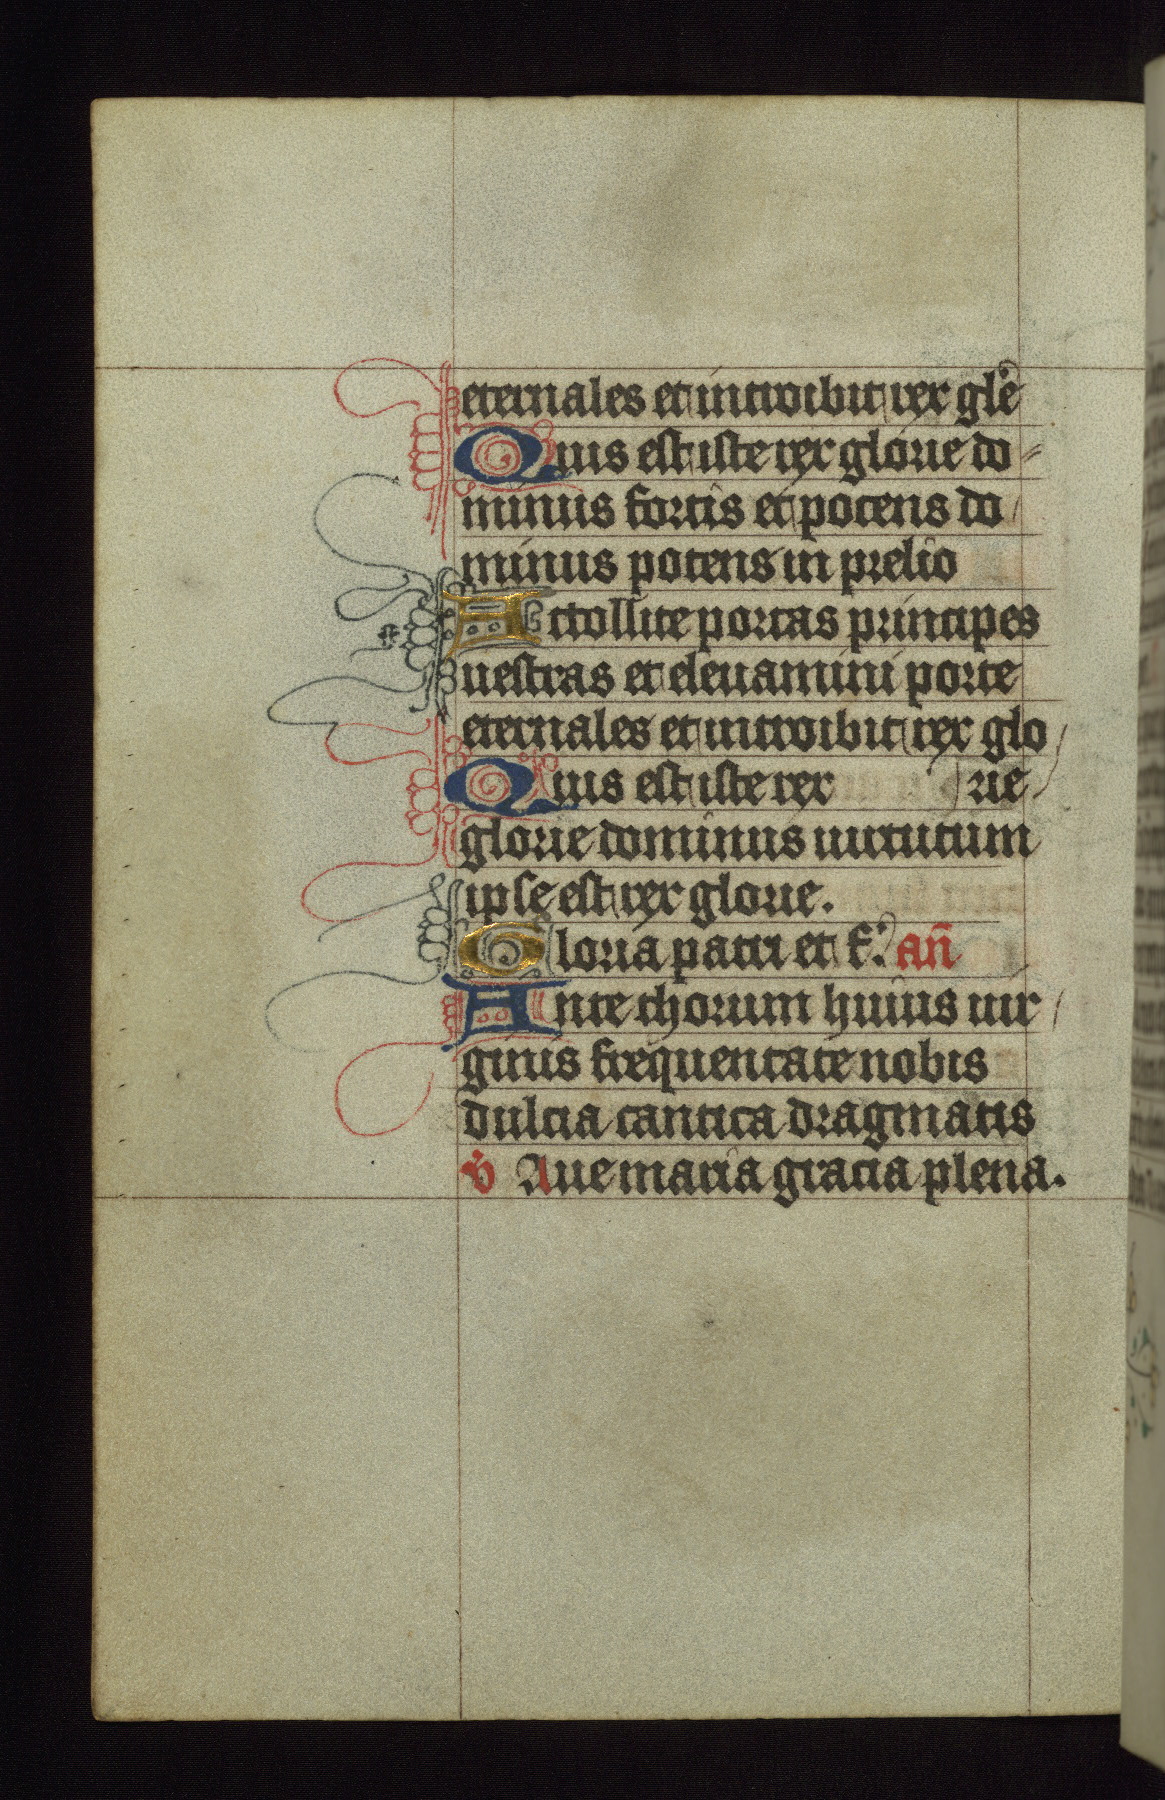 eternales et introibit rex gl'e
Quis est iste rex glorie do-
minus fortis et potens do
minus potens in prelio
Attollite portas principes
uestras et eleuamini porte
eternales et introibit rex glo
Quis est iste rex rie
glorie dominus uirtutum
ipse est rex glorie.
Gloria patri et f. an̄
Ante thorum huius uir
ginis frequentate nobis
dulcia cantica dragmatis
v̄ Aue maria gracia plena.